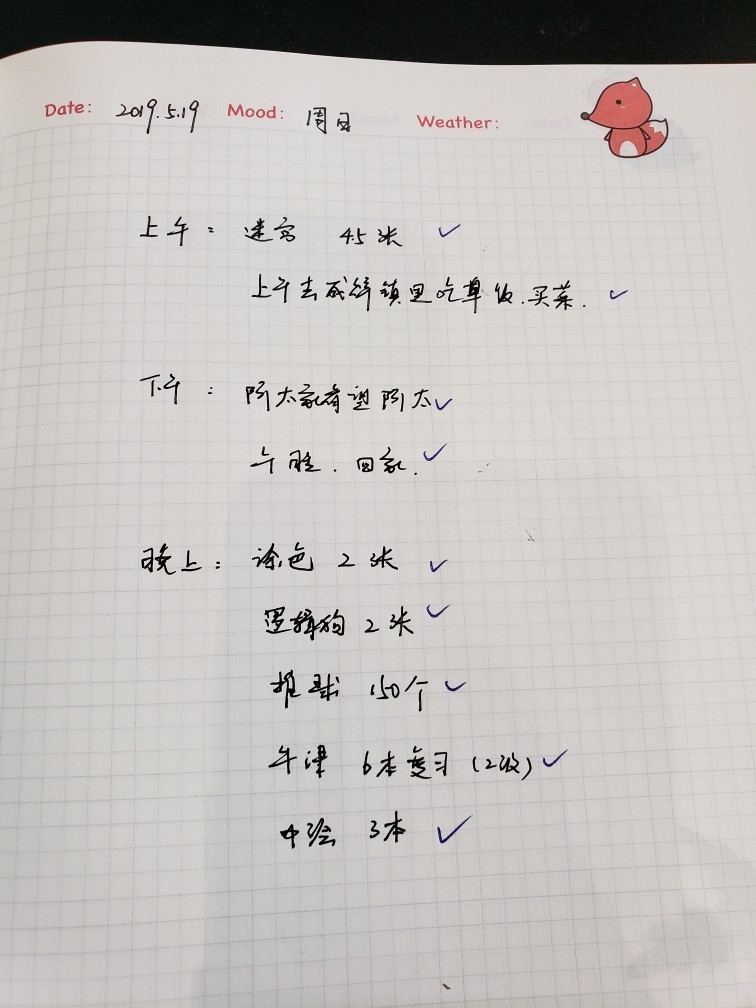 Date: 2019.5.19 Mood: 周日 Weather:
上午: 迷宫 45张 ✓
上午去成辉镇里吃早饭.买菜. ✓
下午: 阿太家看望阿太 ✓
午睡. 回家. ✓
晚上: 涂色 2张 ✓
逻辑狗 2张 ✓
推球 150个 ✓
牛津 6本复习(2次) ✓
中绘 3本 ✓